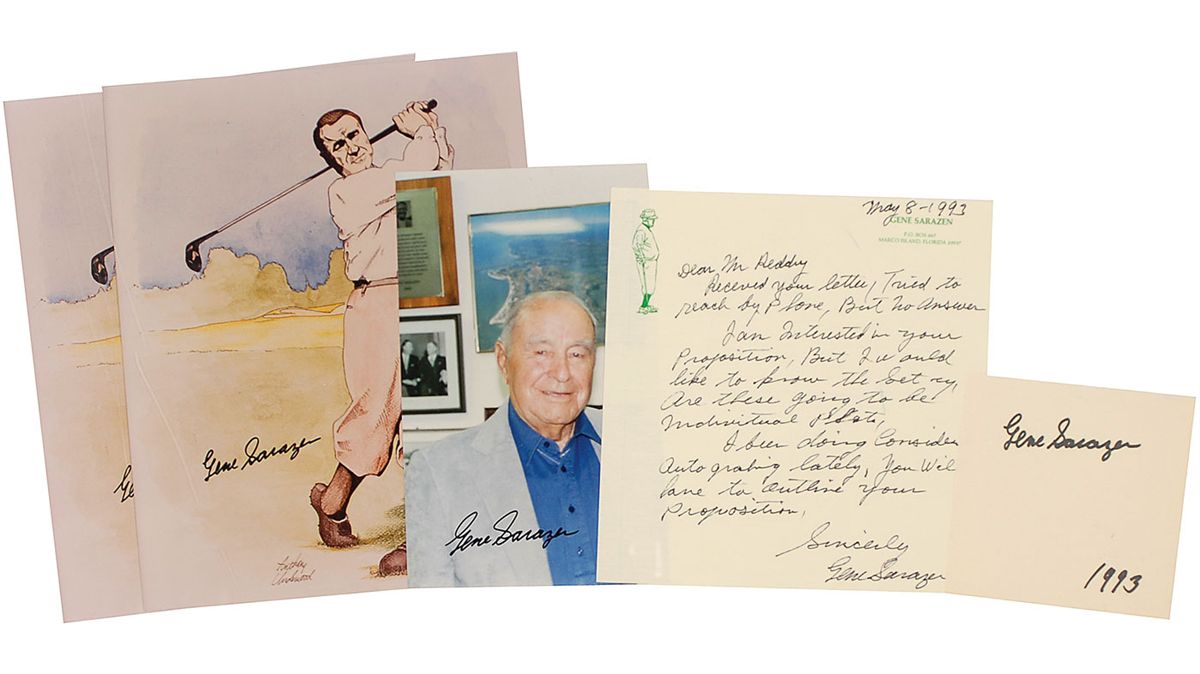 Gene Sarazen
Gene Sarazen
May 8-1993
GENE SARAZEN
P.O. BOX 667
MARCO ISLAND, FLORIDA
Dear Mr Reddry
Received your letter, Tried to
reach by Phone, But No Answer
I am Interested in your
Proposition, But I would
like to know the
Are these going to be
Individual
I been doing Consider
Autographing lately, You Will
have to outline your
Proposition,
Sincerly
Gene Sarazen
Gene Sarazen
1993